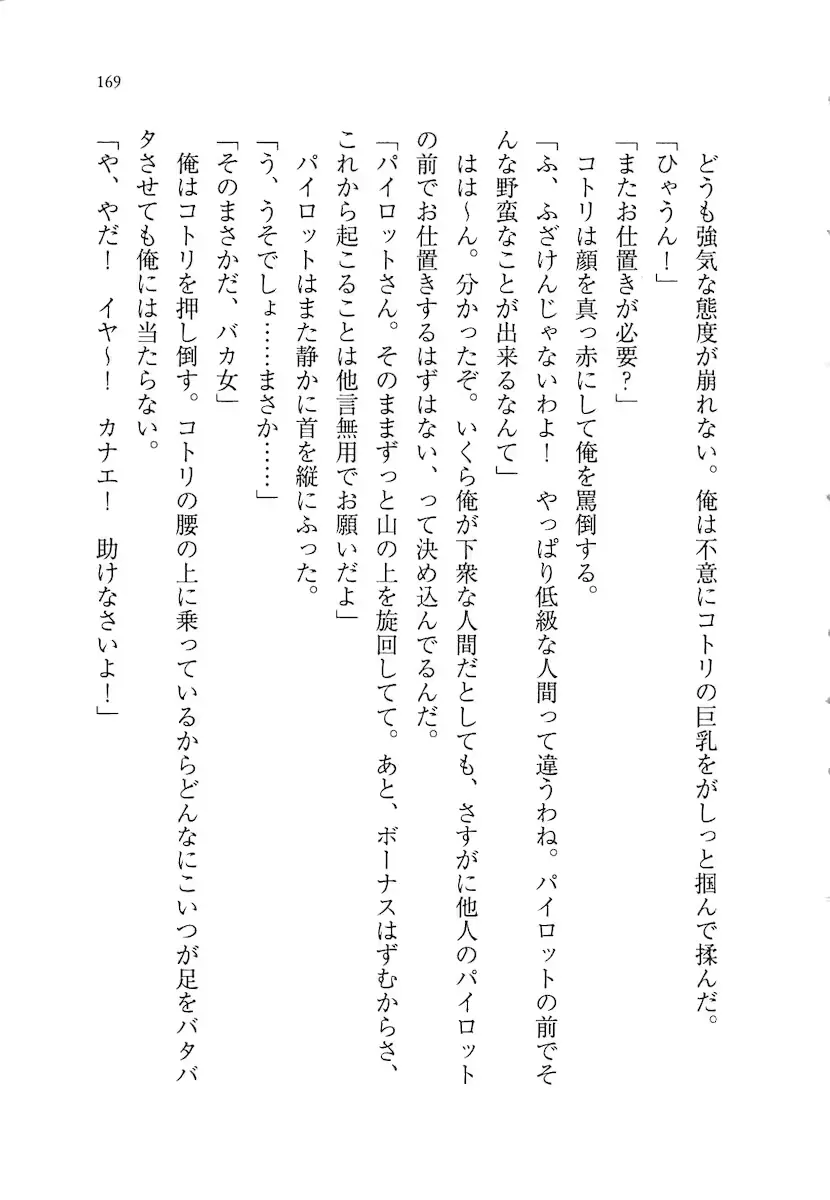 169
　どうも強気な態度が崩れない。俺は不意にコトリの巨乳をがしっと掴んで揉んだ。
「ひゃうん！」
「またお仕置きが必要？」
　コトリは顔を真っ赤にして俺を罵倒する。
「ふ、ふざけんじゃないわよ！　やっぱり低級な人間って違うわね。パイロットの前でそ
んな野蛮なことが出来るなんて」
　はは～ん。分かったぞ。いくら俺が下衆な人間だとしても、さすがに他人のパイロット
の前でお仕置きするはずはない、って決め込んでるんだ。
「パイロットさん。そのままずっと山の上を旋回してて。あと、ボーナスはずむからさ、
これから起こることは他言無用でお願いだよ」
　パイロットはまた静かに首を縦にふった。
「う、うそでしょ……まさか……」
「そのまさかだ、バカ女」
　俺はコトリを押し倒す。コトリの腰の上に乗っているからどんなにこいつが足をバタバ
タさせても俺には当たらない。
「や、やだ！　イヤ～！　カナエ！　助けなさいよ！」